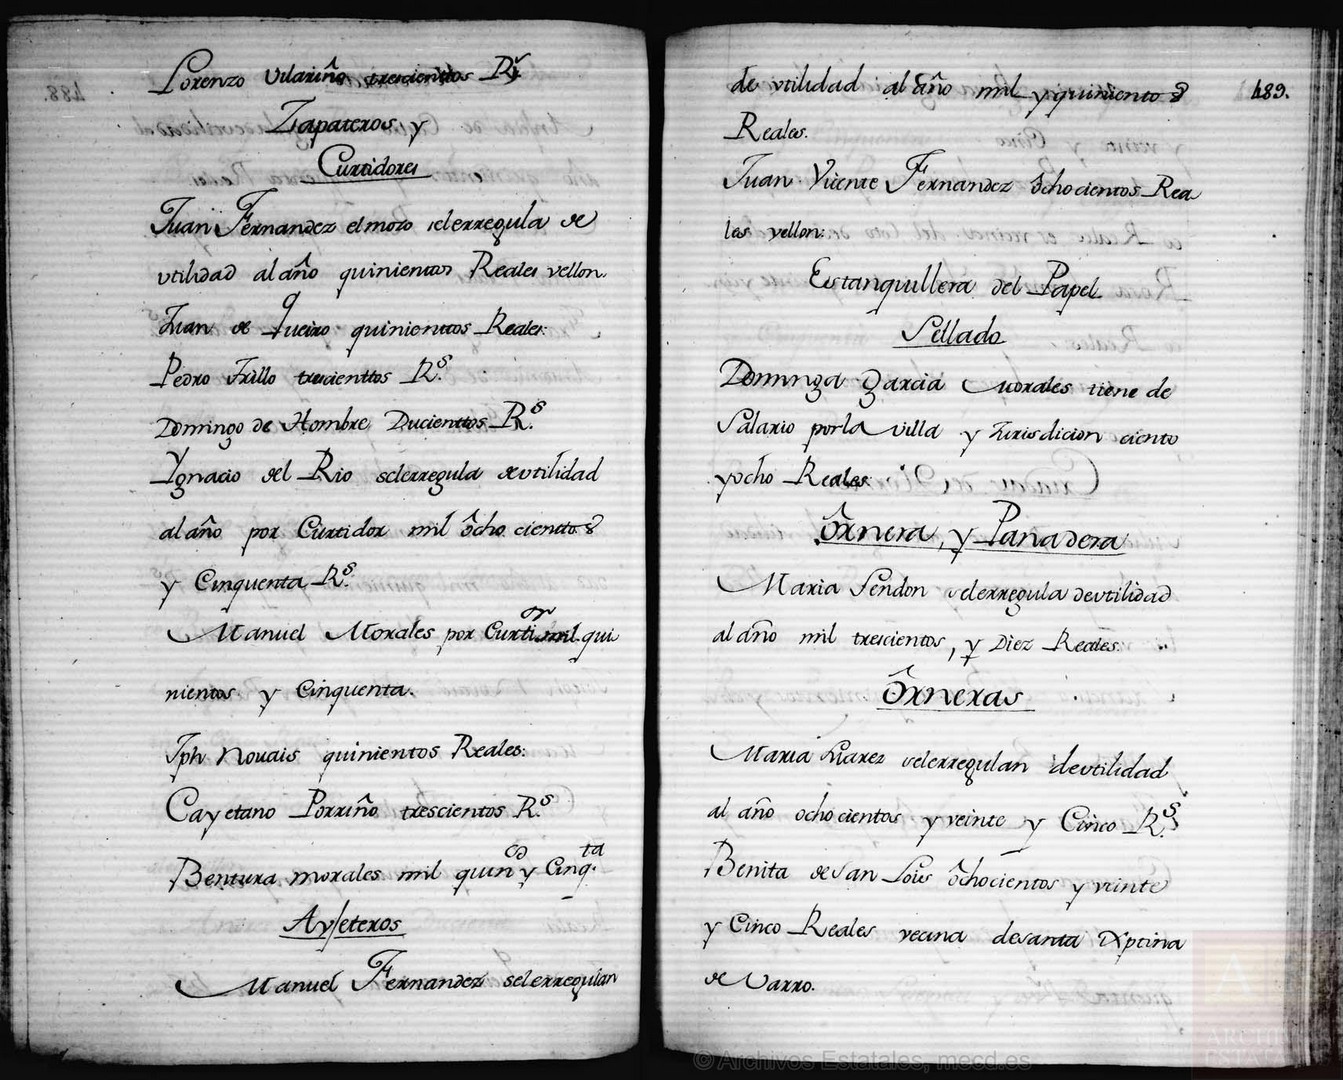 Lorenzo Vilariño trescienttos R.s
Zapateros y
Curtidores
Juan Fernandez el mozo selerregula de
utilidad al año quinientos Reales vellon.
Juan de Queiro quinienttos Reales:
Pedro Trillo trescienttos R.s
Domingo de Hombre Ducienttos R.s
Ygnacio del Rio selerregula deutilidad
al año por Curtidor mil ôcho cienttos
y Cinquenta R.s
Manuel Morales por Curtior mil qui
nientos y Cinquenta.
Jph Novais quinientos Reales:
Cayetano Porriño trescientos R.s
Bentura morales mil quin.os y Cinq.ta
Manuel Fernandez selerregulan
de utilidad al año mil y quinientos
489.
Reales.
Juan Vicente Fernandez ôchocientos Rea
les vellon:
Estanquillera del Papel
Sellado
Dominga Garcia Morales tiene de
Salario por la villa y Jurisdicion ciento
yocho Reales
Ôrnera, y Panadera
Maria Sendon selerregula deutilidad
al año mil trescientos, y Diez Reales.
Ôrneras
Maria selerregulan deutilidad
al año ocho cientos y veinte y Cinco R.s
Benita de San Lois ôchocientos y veinte
y Cinco Reales vecina desanta Xptina
de Varro.
© Archivos Estatales, mecd.es